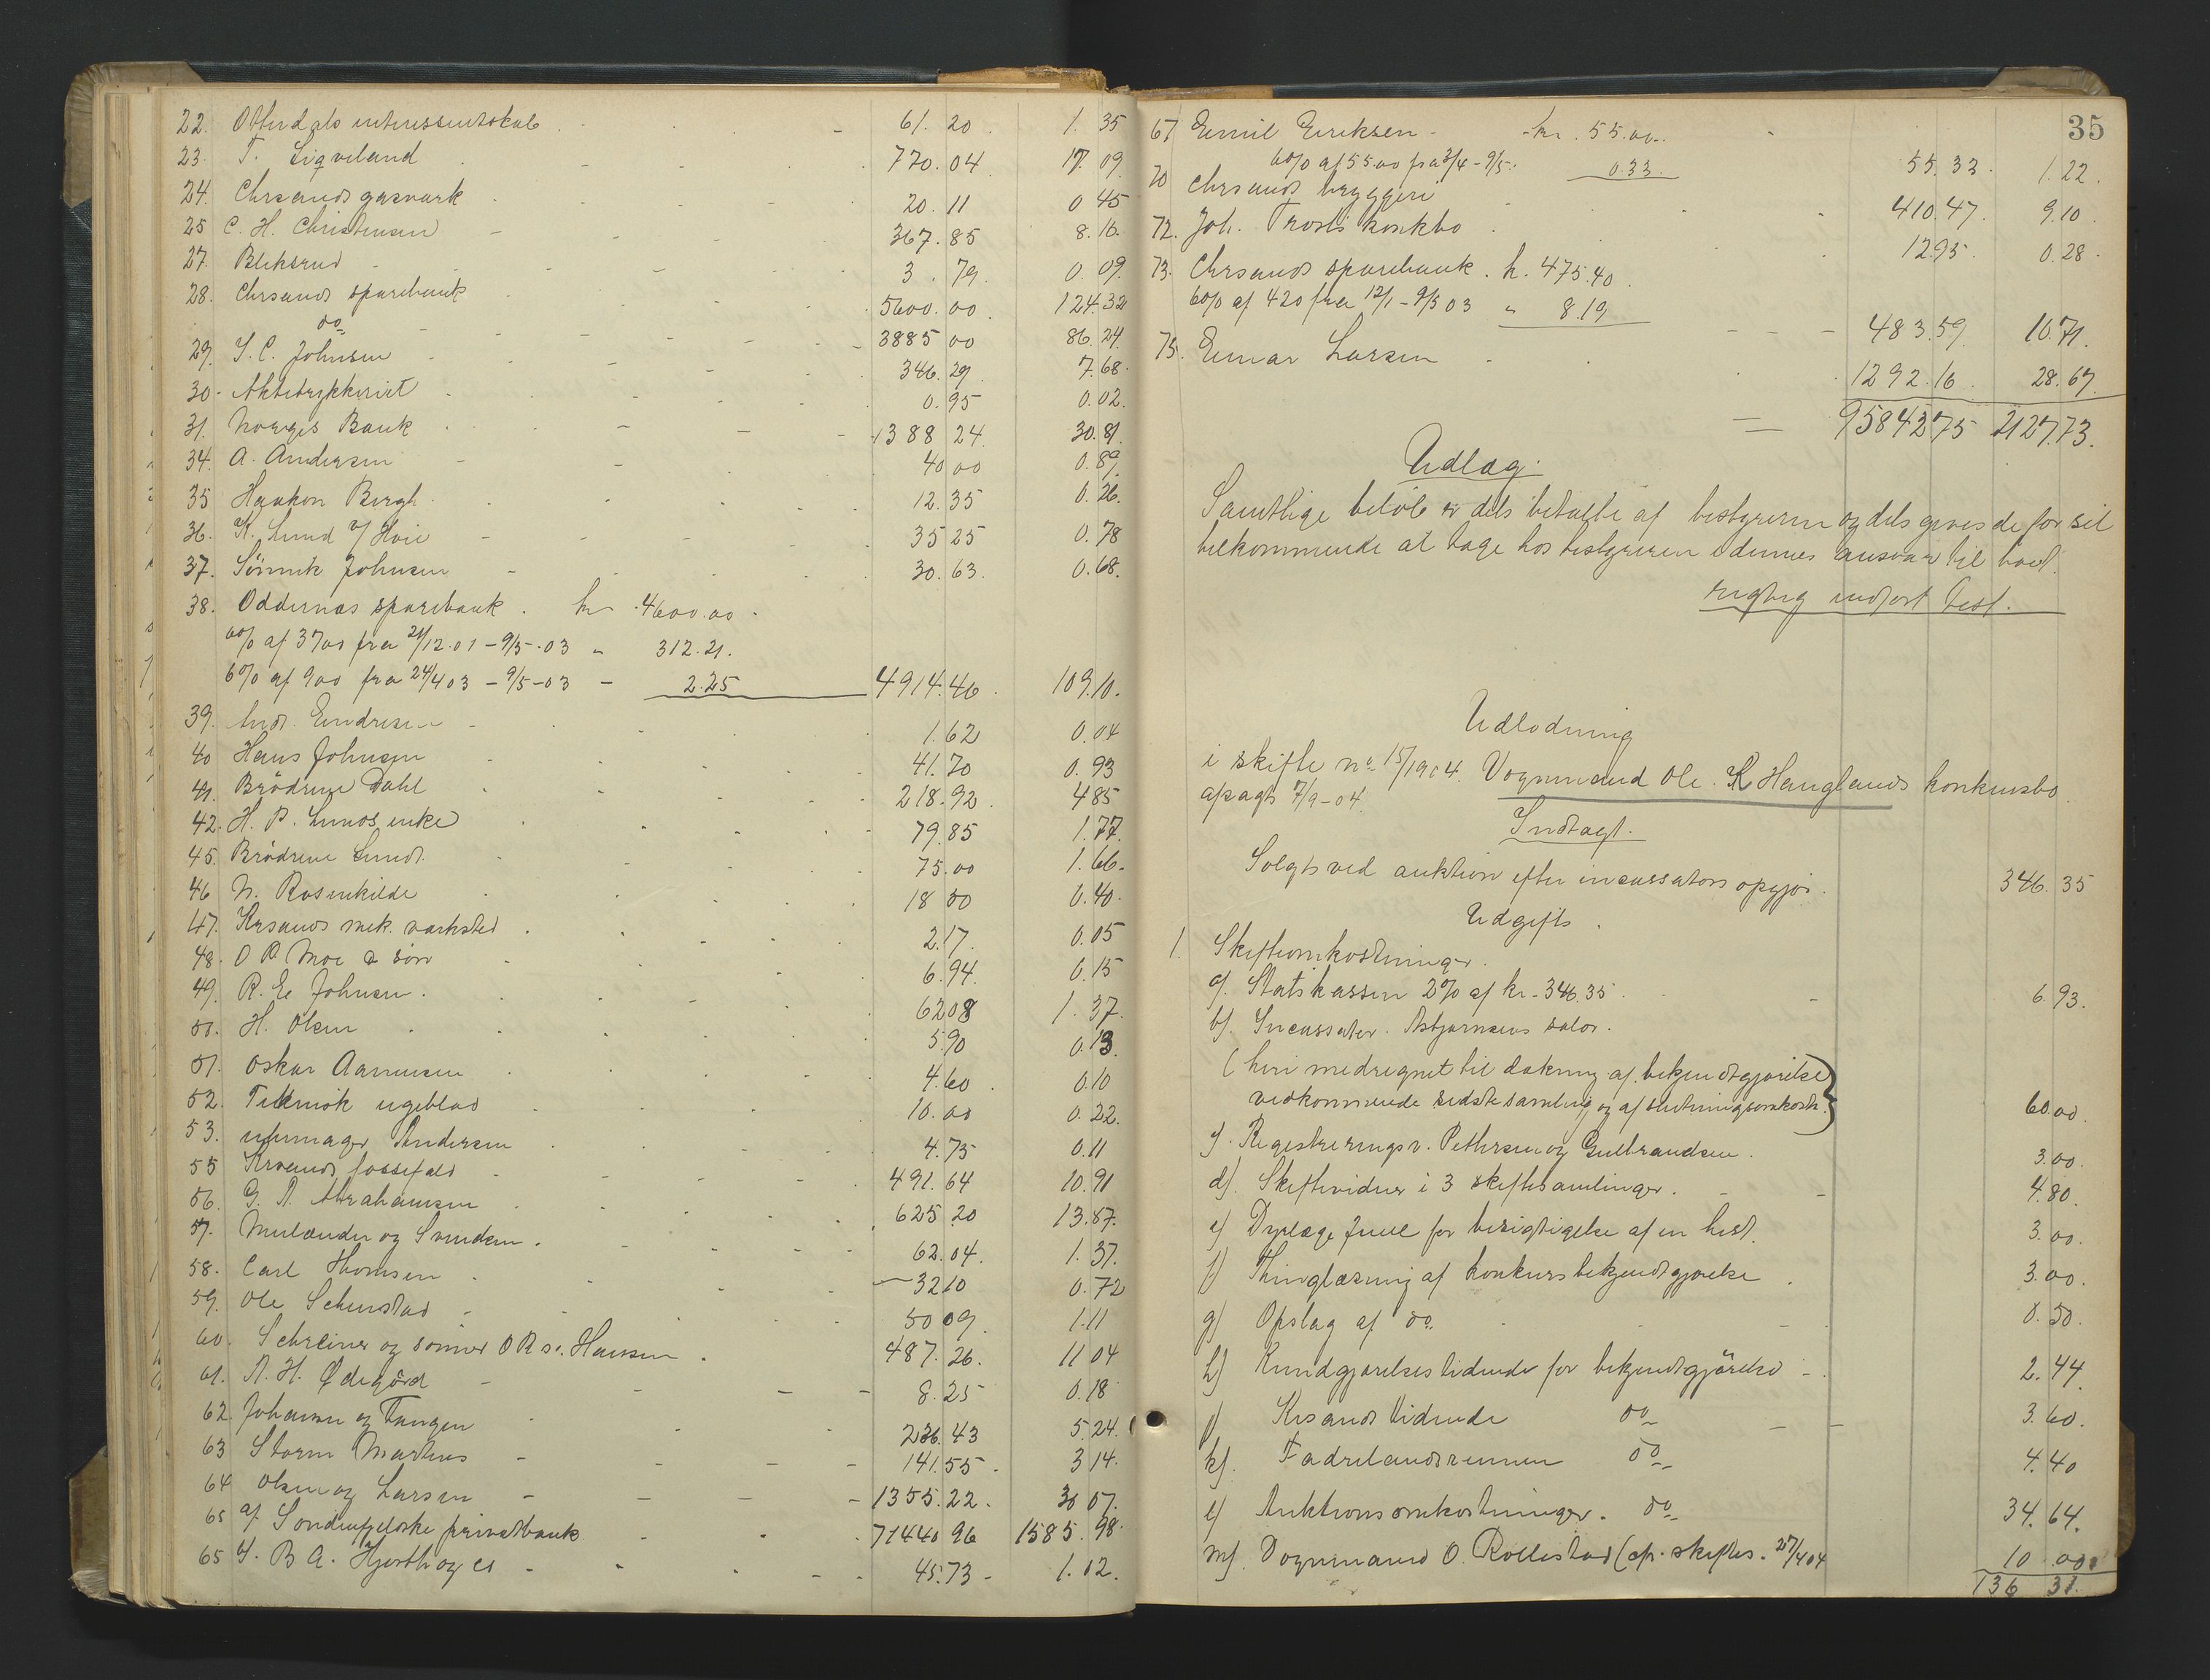 22. Otterdals interessentskab - 61.20 1.35
23 T. Ligveland 770.04 17.09
24. Chrsands gasværk 20.11 0 45
25 C. H. Christensen 367.85 8.16
27. Bleksrud 3.79 0.09
28. Chrsands sparebank 5600.00 124.32
do 3885 00 86.24
29. S. C. Johnsen 346.29 7.68
30. Aktietrykkeriet 0.95 0.02
31. Norges Bank 1388 24 30.81
34. A. Andersen 40 00 0.89
35 Haakon Bergh 12.35 0.26
36. K. Lund v/ Hoie 35 25 0.78
37. Sönnik Johnsen 30.63 0.68
38. Oddernæs sparebank. kr 4600.00
6% af 3700 fra 21/12.01 - 9/5-03 " 312.21.
6% af 900 fra 24/4 03 - 9/5-03 - 2.25 4914.46 109.10.
39. Endresen 1.62 0.04
40 Hans Johnsen 41.70 0.93
41. Brödrene Dahl 218.92 4 85
42. H. P. Lunds enke 79.85 1.77
45. Brödrene Lund 75.00 1.66
46 N. Rosenkilde 18 00 0.40
47. Krsands mek. værksted 2.17 0.05
48. O P Moe & sön 6.94 0.15
49. R. E. Johnsen. 62 08 1.37
50. H. Olsen 5.90 0.13
51. Oskar Aamunsen 4.60 0.10
52. Teknisk ugeblad 10.00 0.22
53. urmager Andersen 4.75 0.11
55 Krsands fossefald 491.64 10.91
56. G. A. Abrahamsen 625 20 13.87
57. Melander og Svendsen. 62.04 1.37.
58. Carl Thomsen 32 10 0.72
59. Ole Schustad 50 09 1.11
60. Schreiner og sönner O R s. Hansen 487.26. 11 04
61. A. H. Ødegård 8.25 0.18
62. Johansen og Tangen 236.43 5.24
63 Storm Martens 141.55 3 14.
64 Olsen og Larsen 1355.22. 30 07.
65 a/ Söndenfjeldske privatbank 71440 96 1585.98
65 B A. Hjorth og co 45.73 1.02.
35
67 Emil Eriksen - kr. 55.00
6% af 55.00 fra 3/4 - 9/5. 0.33. 55.33. 1.22.
70 Chrsands bryggeri 410.47. 9.10.
72. Joh. Trosts konkbo 12.95. 0.28.
73. Chrsands sparebank. kr. 475.40
6% af 420 fra 12/1 - 9/5 03 " 8.19 483.59. 10.71.
75. Einar Larsen 1292.16 28.67
95843.75 2127.73.
Udlæg.
Samtlige beløb er dels betalte af bestyreren og dels gives de for sit
vedkommende at tage hos bestyreren i dennes ansvar til boet.
rigtig indfört test.
Udlodning
i skifte no 15/1904. Vognmand Ole. K Hauglands konkursbo
afsagt 7/9-04.
Indtægt.
Solgts ved auktion efter incassators opgjör. 346.35
Udgifts.
1. Skifteomkostninger.
a/. Statskassen 2% af kr. 346.35 6.93.
b/. Incassator. Asbjørnsens salær.
(heri medregnet til dækning af bekjendtgjørelse
vedkommende sidste samling og af slutningsomkostn.} 60.00
c/. Registreringsv. Pettersen og Gulbrandsen. 3.00.
d/. Skiftevidner i 3 skiftesamlinger. 4.80.
e/ Dyrlæge Juul for besigtigelse af en hest. 3.00.
f/ Thinglæsning af konkursbekjendtgjørelse 3.00.
g/ Opslag af do. 0.50.
h/ Kundgjørelsestidende for bekjendtgjörelse - 2.44
j/ Krsands tidende do 3.60.
k/. Fædrelandsvennen do 4.40
l/ Auktionsomkostninger. do 34.64.
m/. Vognmand O. Rollestad (cfr. skiftes. 27/4 04 10 00
136 31.